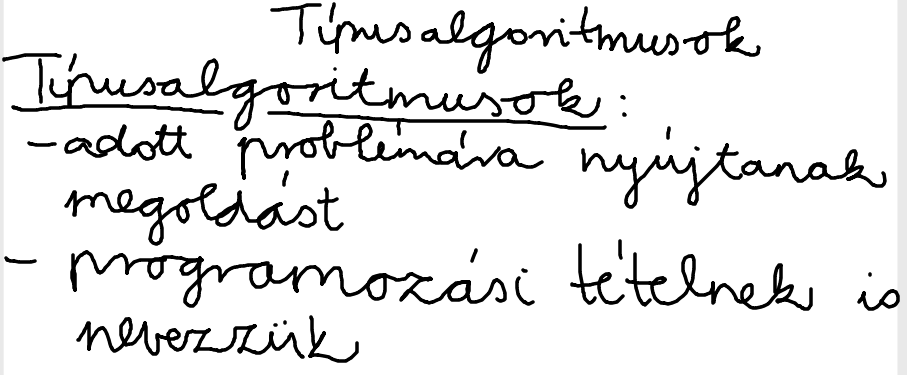 Típusalgoritmusok
Típusalgoritmusok:
-adott problémára nyújtanak
megoldást
- programozási tételnek is
nevezzük